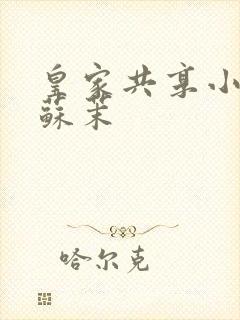 皇家共享小
蘇茉
哈尔克